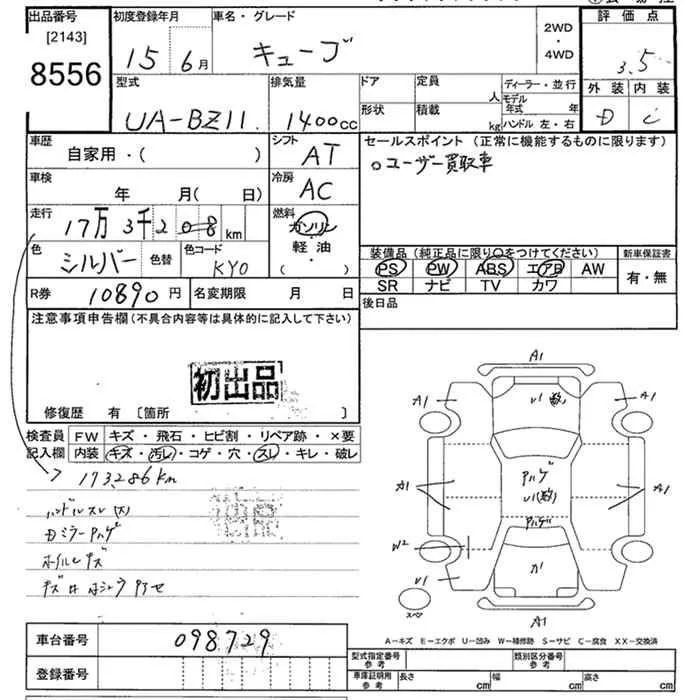 出品番号 初度登録年月 車名・グレード 2WD・4WD 評価点
[2143]
8556
15 6月 キューブ 3.5
型式 排気量 ドア 定員 人 ディーラー・並行 外装 内装
UA-BZ11 1400cc 形状 積載 kg モデル年式 年 D C
ハンドル 左・右
車歴 自家用・( ) シフト AT
セールスポイント(正常に機能するものに限ります)
○ユーザー買取車
車検 年 月( 日) 冷房 AC
走行 17万3千208km 燃料 ガソリン
軽油
・( )
色 シルバー 色替 色コード KY0
装備品(純正品に限り○をつけてください) 新車保証書
PS PW ABS エアB AW 有・無
SR ナビ TV カワ
R券 10890円 名変期限 月 日
後日品
注意事項申告欄(不具合内容等は具体的に記入して下さい)
初出品
修復歴 有 [箇所 ]
検査員記入欄 FW キズ・飛石・ヒビ割・リペア跡・×要
内装 キズ・汚レ・コゲ・穴・スレ・キレ・破レ
173286km
ハンドルスレ(大)
ホイールキズ
A1
A1 U1 A1
A1
W2
U1
スペア
A1
A-キズ E-エクボ U-凹み W-補修跡 S-サビ C-腐食 XX-交換済
車台番号 098729
登録番号
型式指定番号 参考 類別区分番号 参考
車庫証明用 参考 長さ cm 幅 cm 高さ cm